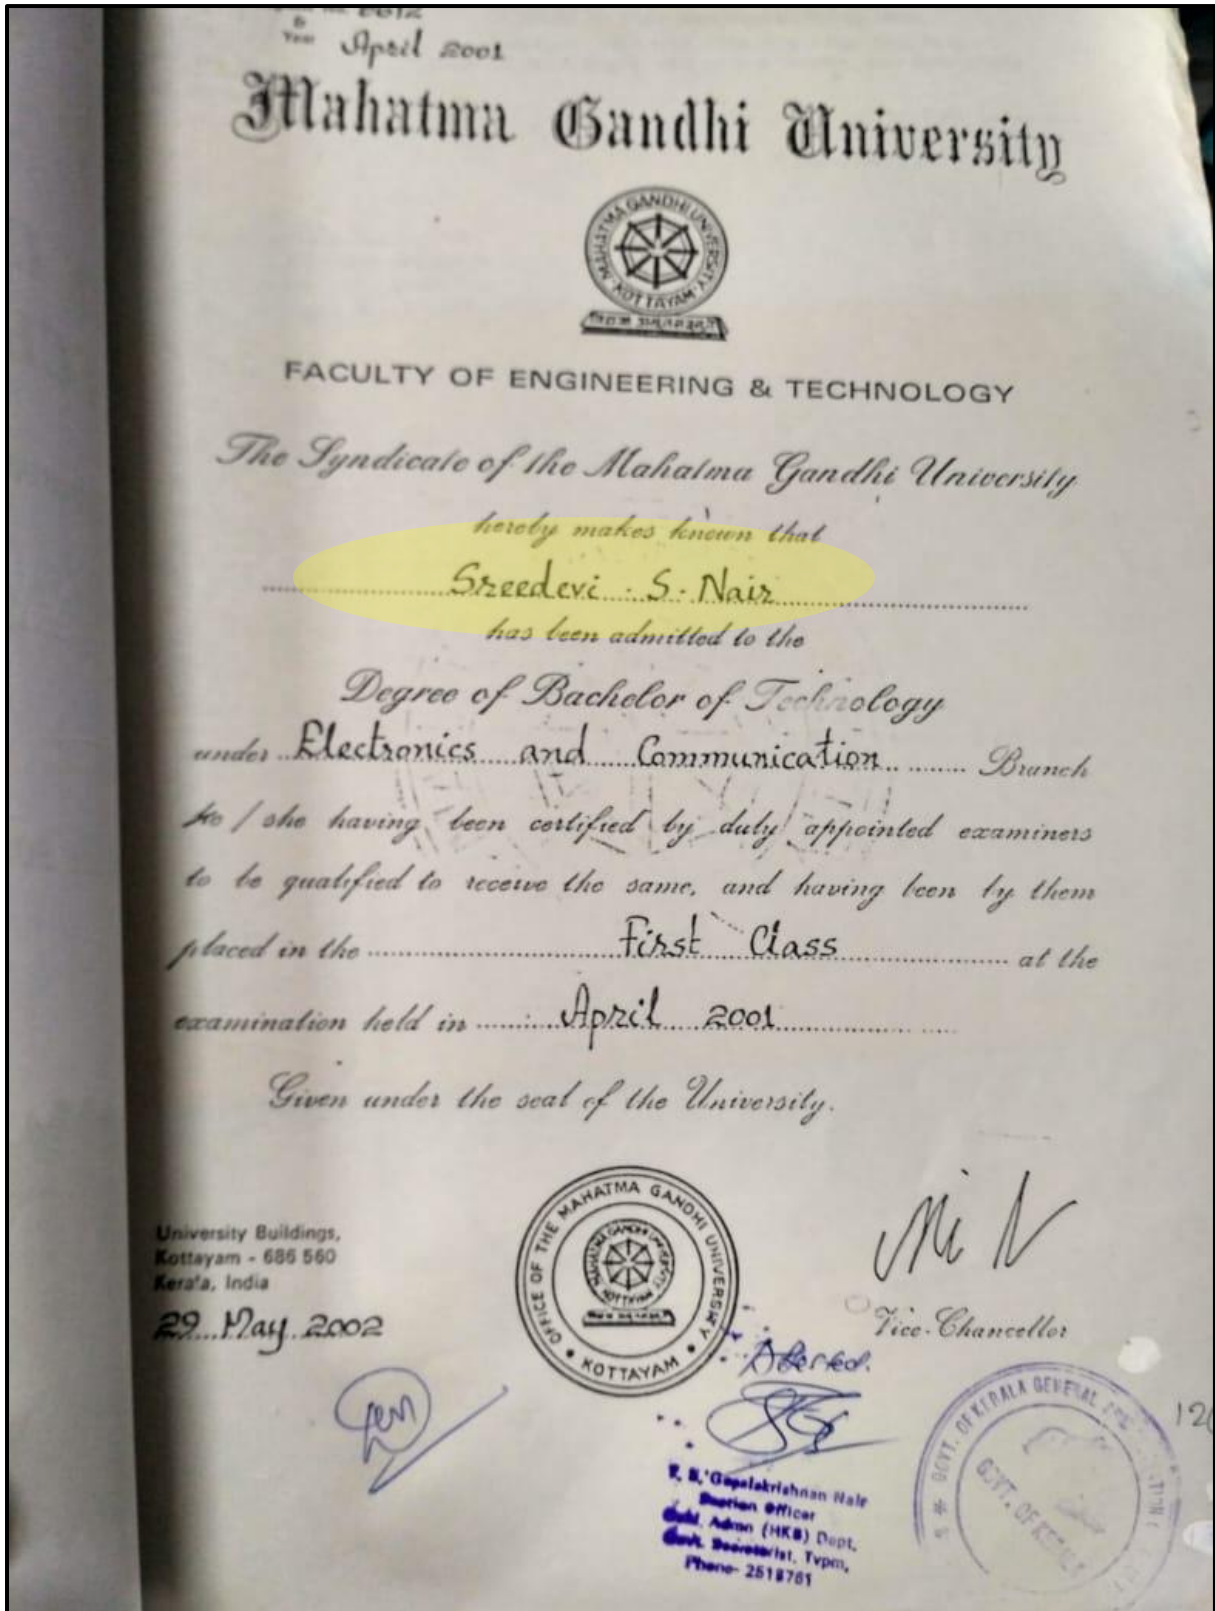 &
Year April 2001
Mahatma Gandhi University
MAHATMA GANDHI UNIVERSITY
KOTTAYAM
FACULTY OF ENGINEERING & TECHNOLOGY
The Syndicate of the Mahatma Gandhi University
hereby makes known that
Sreedevi . S. Nair
has been admitted to the
Degree of Bachelor of Technology
under Electronics and Communication Branch
he / she having been certified by duly appointed examiners
to be qualified to receive the same, and having been by them
placed in the First Class at the
examination held in April 2001
Given under the seal of the University.
University Buildings,
Kottayam - 686 560
Kerala, India
29 May 2002
OFFICE OF THE MAHATMA GANDHI UNIVERSITY
KOTTAYAM
MAHATMA GANDHI UNIVERSITY
KOTTAYAM
Vice-Chancellor
Attested.
Gopalakrishnan Nair
Section Officer
Admn (HKB) Dept,
Govt. Secretariat, Tvpm,
Phone- 2518761
GOVT. OF KERALA GENERAL
GOVT. OF KERALA